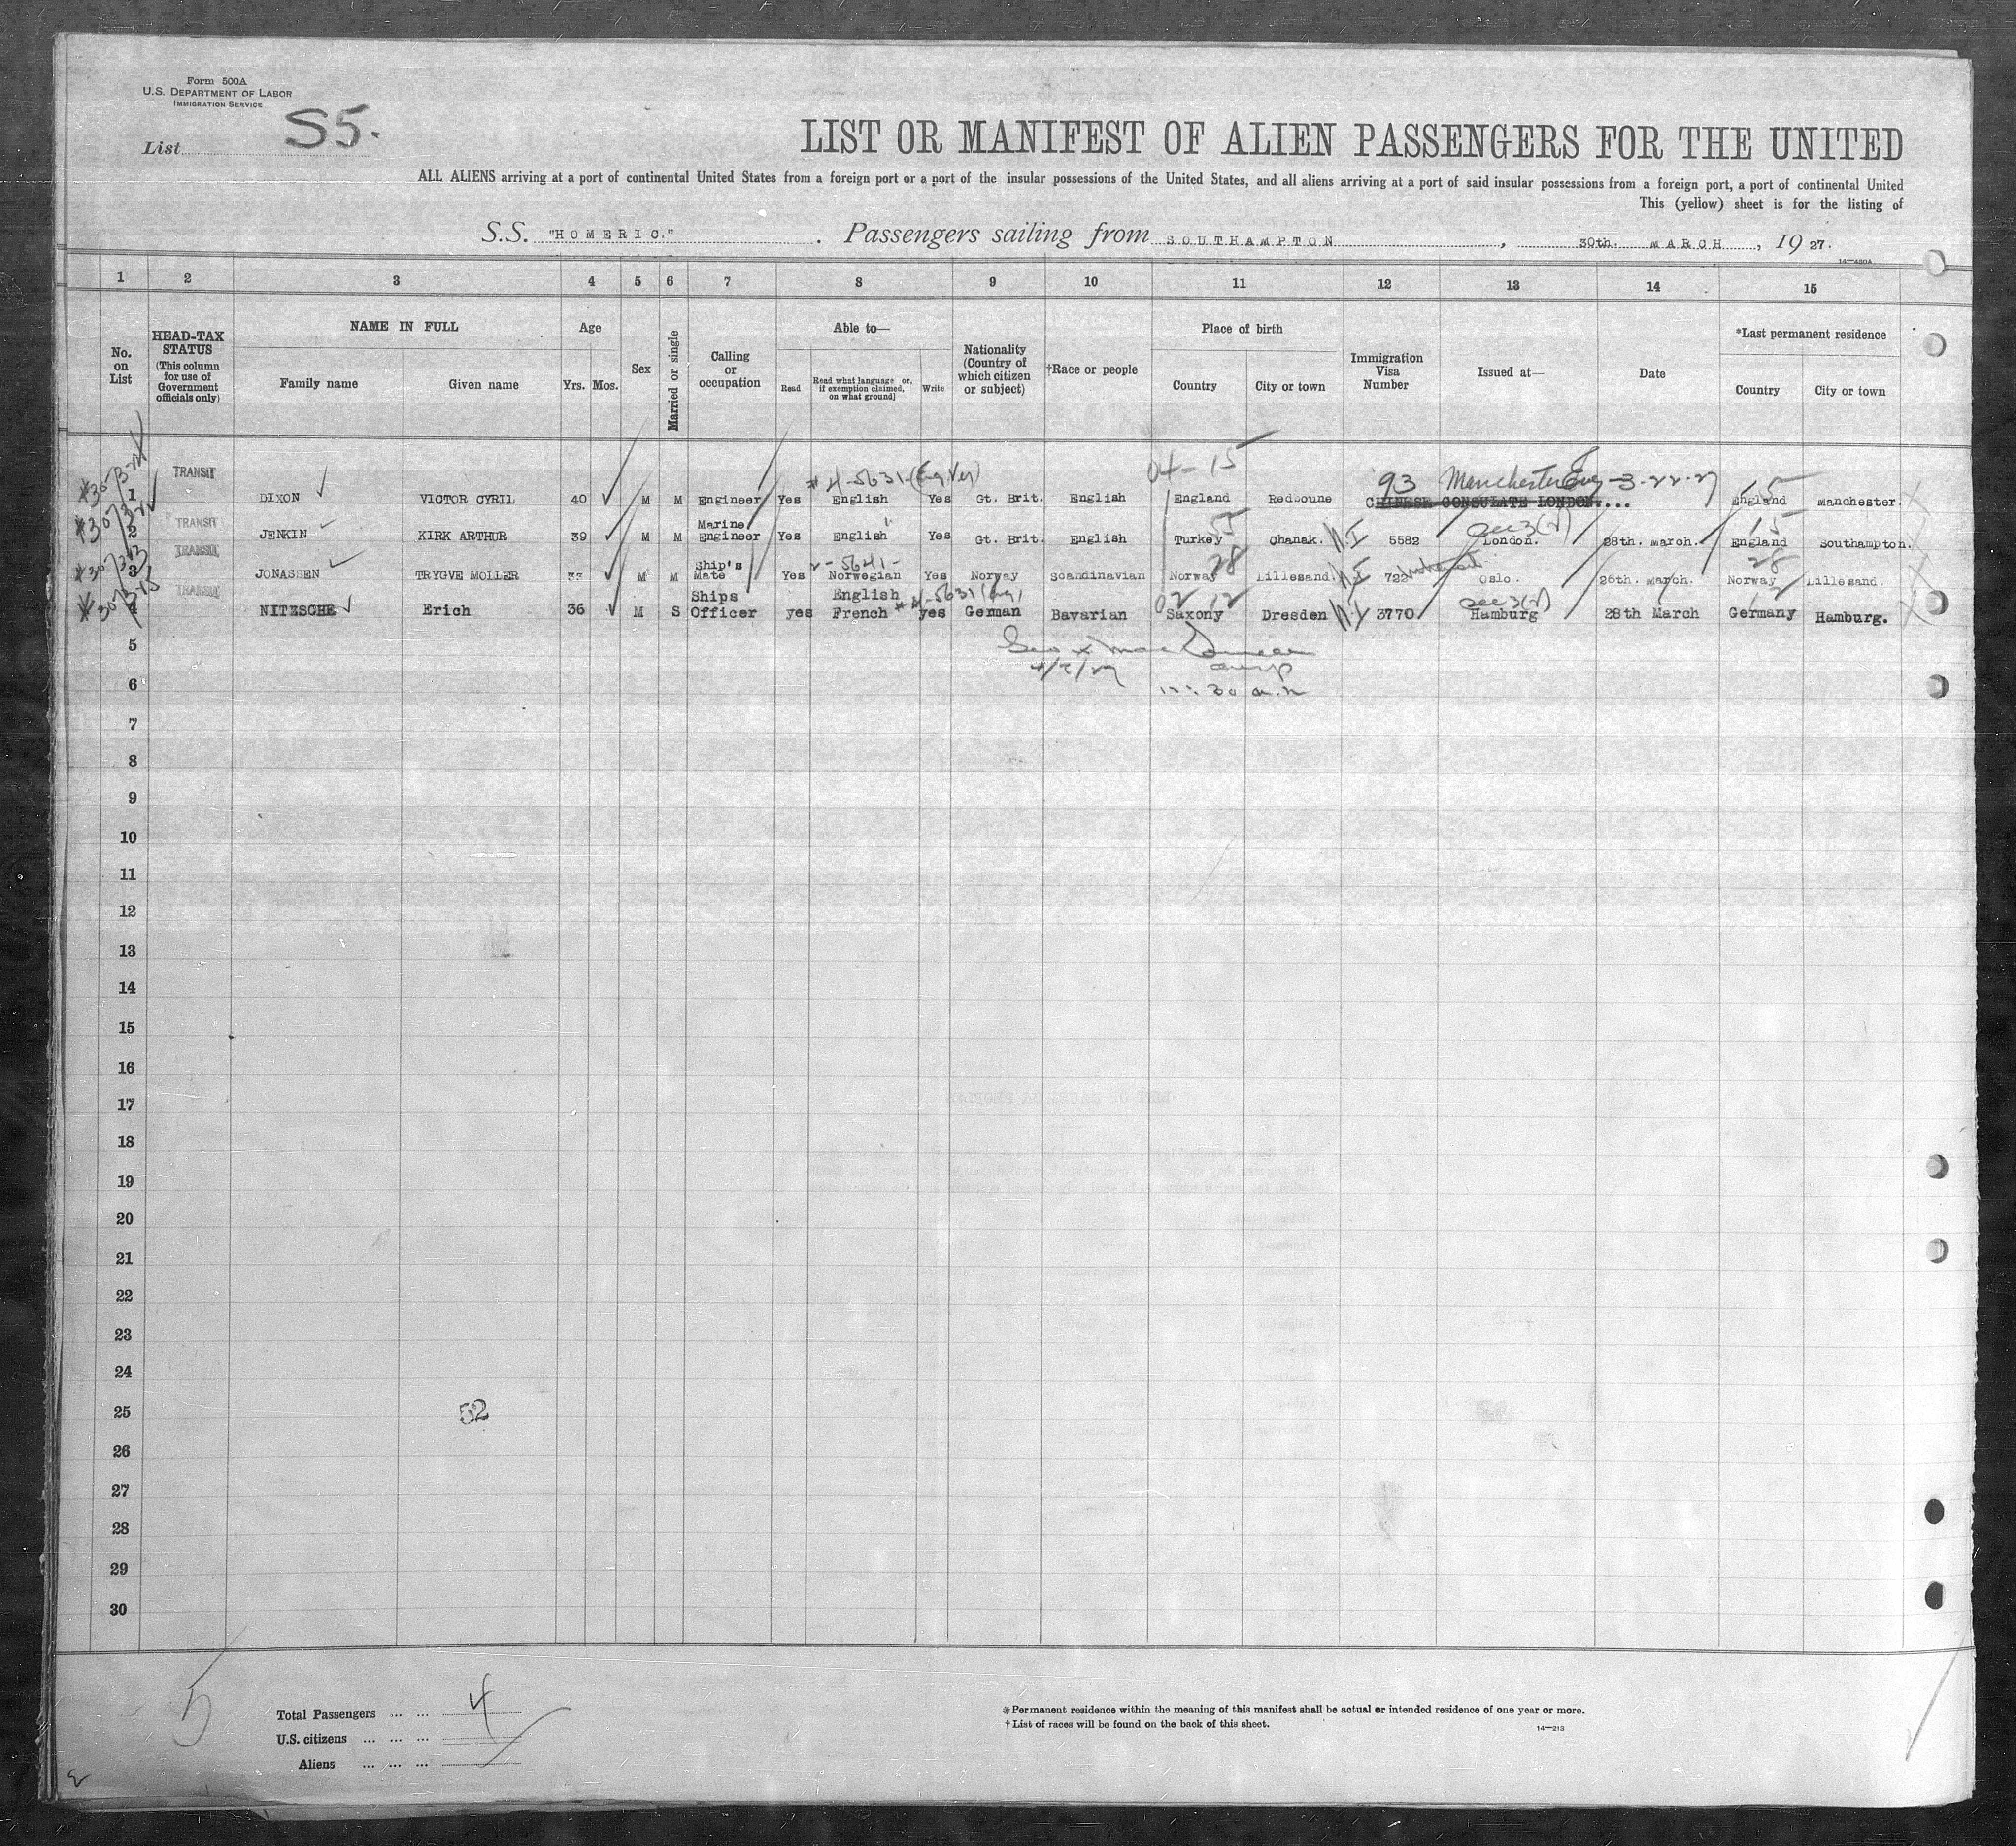 Form 500A
U.S. DEPARTMENT OF LABOR
IMMIGRATION SERVICE
List S5.
LIST OR MANIFEST OF ALIEN PASSENGERS FOR THE UNITED
ALL ALIENS arriving at a port of continental United States from a foreign port or a port of the insular possessions of the United States, and all aliens arriving at a port of said insular possessions from a foreign port, a port of continental United
This (yellow) sheet is for the listing of
S.S. "HOMERIC." Passengers sailing from SOUTHAMPTON, 30th. MARCH, 1927.
14—430A
1 2 3 4 5 6 7 8 9 10 11 12 13 14 15
No. on List
HEAD-TAX STATUS (This column for use of Government officials only)
NAME IN FULL
Family name Given name
Age
Yrs. Mos.
Sex
Married or single
Calling or occupation
Able to—
Read Read what language or, if exemption claimed, on what ground) Write
Nationality (Country of which citizen or subject)
†Race or people
Place of birth
Country City or town
Immigration Visa Number
Issued at—
Date
*Last permanent residence
Country City or town
04-15
#4-5631-(Eng Ver) 93 Manchester Eng -3-22-27 15
TRANSIT
1 DIXON VICTOR CYRIL 40 M M Engineer Yes English Yes Gt. Brit. English England Redboune CHINESE CONSULATE LONDON.... England Manchester.
TRANSIT 55 15
2 JENKIN KIRK ARTHUR 39 M M Marine Engineer Yes English " Yes Gt. Brit. English Turkey Chanak. N.I 5582 London. 28th. March. England Southampton.
TRANSIT 2-5641- 28 28
3 JONASSEN TRYGVE MOLLER M M Ship's Mate Yes Norwegian Yes Norway Scandinavian Norway Lillesand. 722 Oslo. 26th. March. Norway Lillesand.
TRANSIT #4-5631 (Eng) 02 12 12
4 NITZSCHE Erich 36 M S Ships Officer yes English French yes German Bavarian Saxony Dresden 3770 Hamburg 28th March Germany Hamburg.
5
4/7/27
6
11:30 a.m
7
8
9
10
11
12
13
14
15
16
17
18
19
20
21
22
23
24
25 52
26
27
28
29
30
5
Total Passengers ... ... 4
U.S. citizens ... ... ...
Aliens ... ... ...
*Permanent residence within the meaning of this manifest shall be actual or intended residence of one year or more.
†List of races will be found on the back of this sheet.
14—213